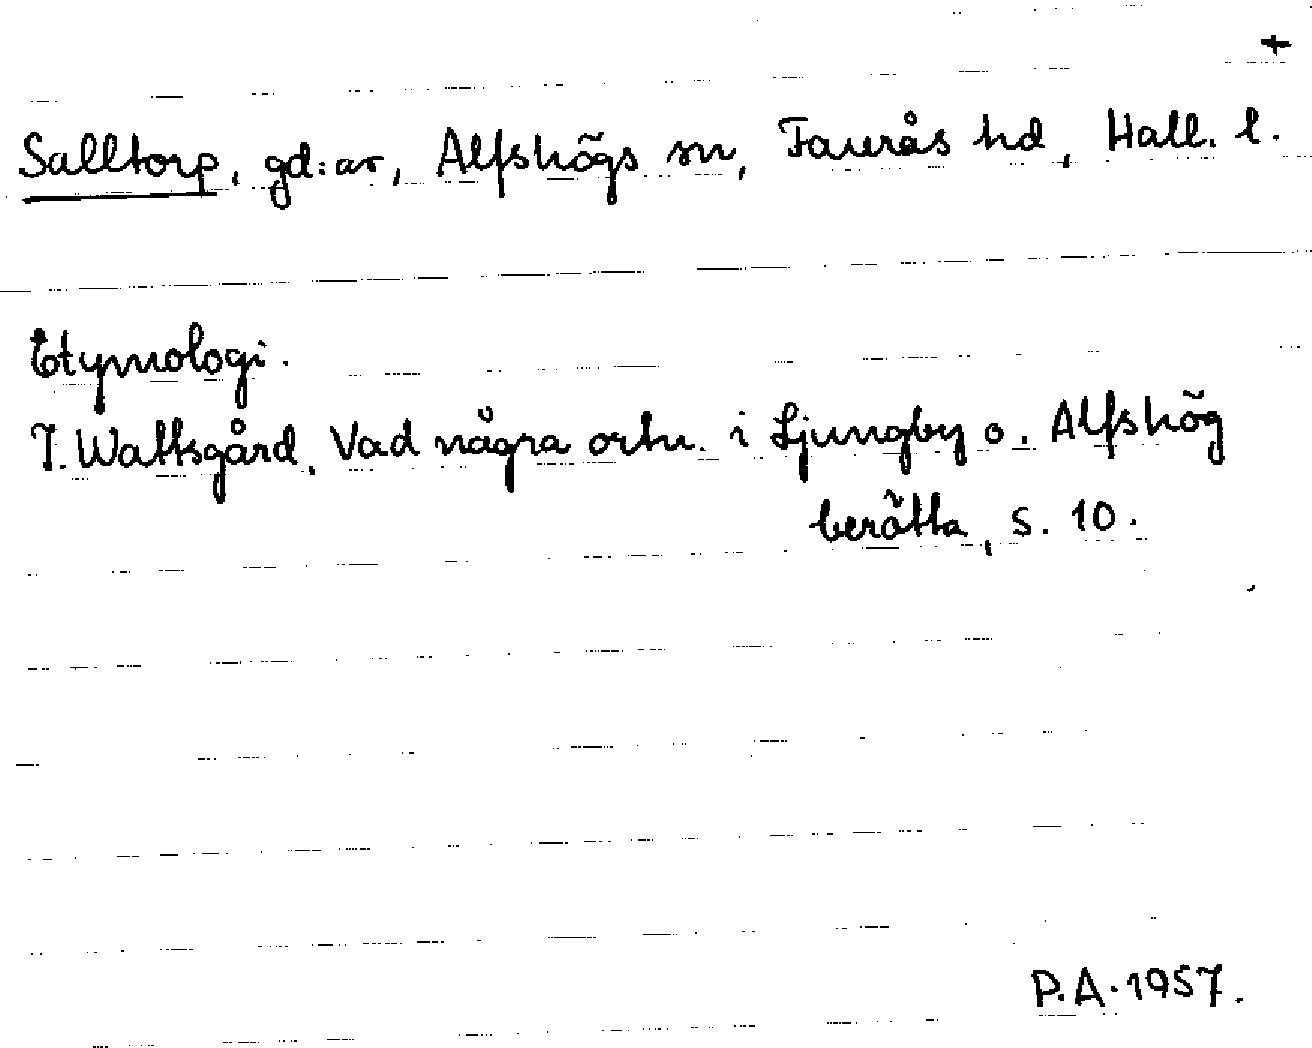 +
Salltorp, gd:ar, Alfshögs sn, Faurås hd, Hall. l.
Etymologi.
J. Wallsgård, Vad några ortn. i Ljungby o. Alfshög
berätta, s. 10.
P.A. 1957.